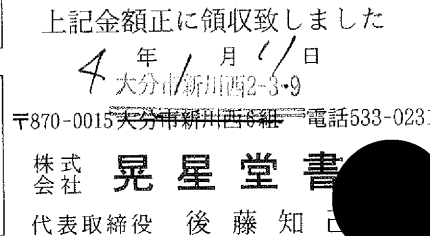 上記金額正に領収致しました
4年1月11日
大分市新川西2-3-9
〒870-0015大分市新川西6組 電話533-0231
株式会社 晃星堂書
代表取締役 後藤知己